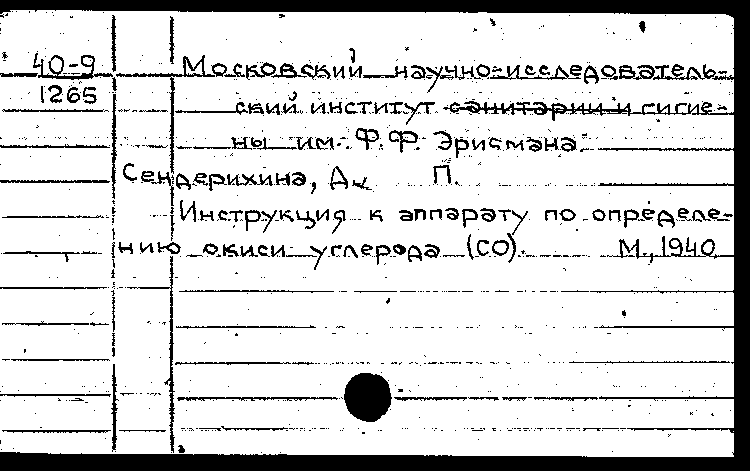 40-9
1265
Московский научно-исследователь-
ский институт санитарии и гигие-
ны им. Ф.Ф. Эрисмана.
Сендерихина, Д. П.
Инструкция к аппарату по определе-
нию окиси углерода (СО). М., 1940